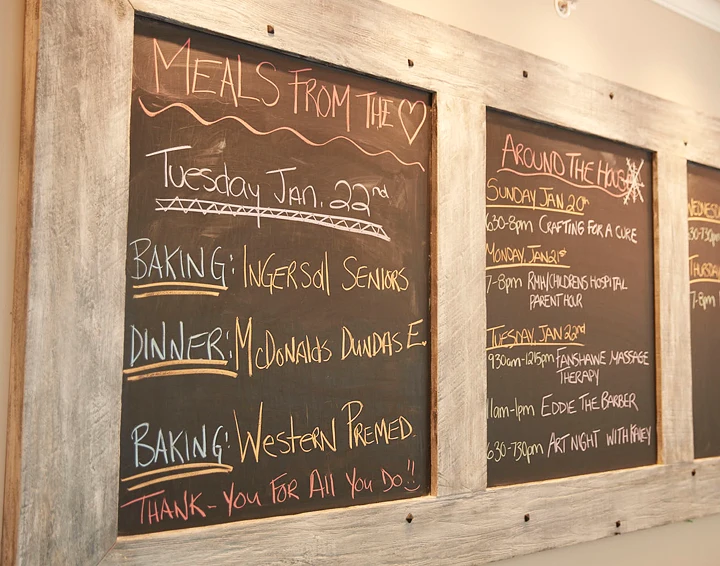 MEALS FROM THE ♡
Tuesday Jan. 22nd
BAKING: INGERSOLL SENIORS
DINNER: McDONALDS DUNDAS E.
BAKING: WESTERN PREMED.
THANK-YOU FOR ALL YOU DO!!
AROUND THE HOUSE
SUNDAY JAN 20th
630-8pm CRAFTING FOR A CURE
MONDAY, JAN 21st
7-8pm RMH/CHILDRENS HOSPITAL
PARENT HOUR
TUESDAY, JAN 22nd
930am-1215pm FANSHAWE MASSAGE
THERAPY
11am-1pm EDDIE THE BARBER
630-730pm ART NIGHT WITH
7-8pm